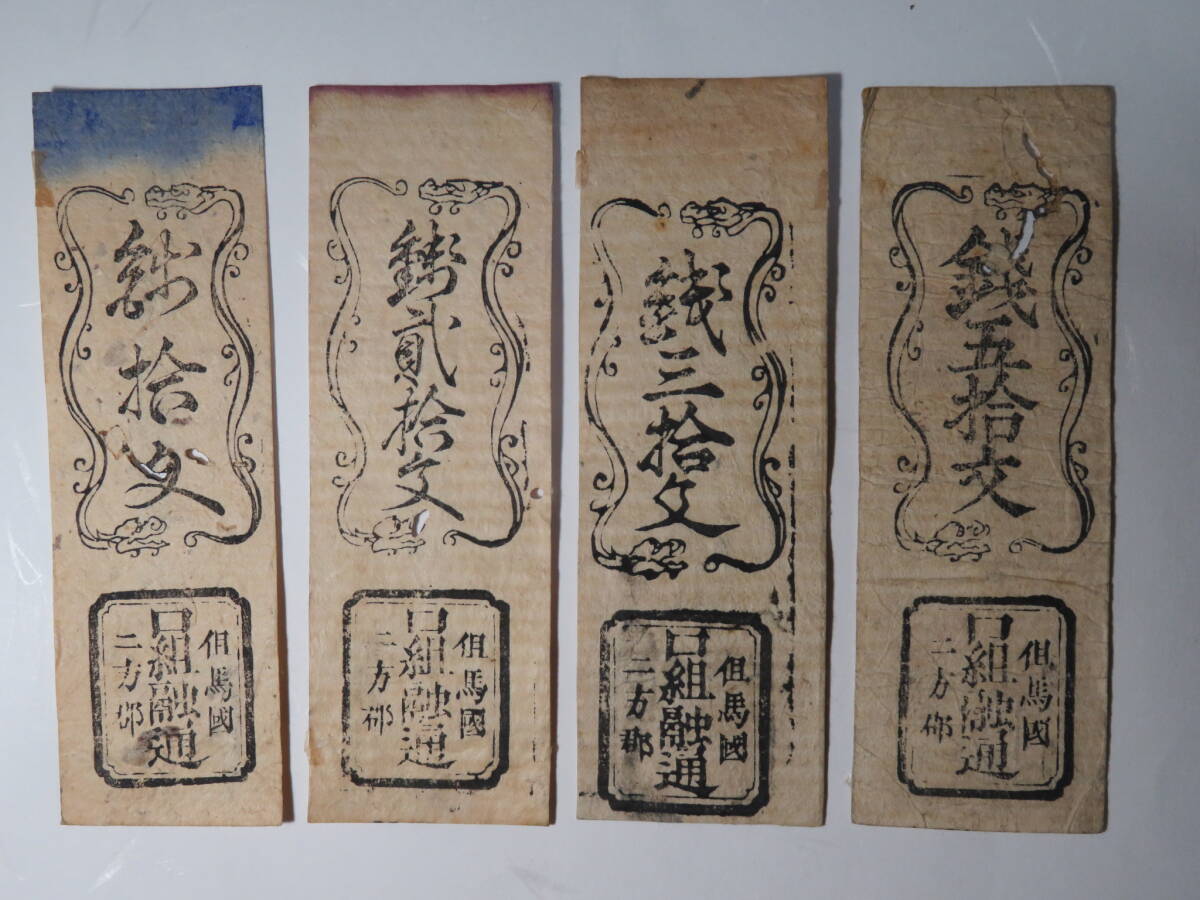 銭拾文
但馬國
口組融通
二方郡
銭貳拾文
但馬國
口組融通
二方郡
銭三拾文
但馬國
口組融通
二方郡
錢五拾文
但馬國
口組融通
二方郡